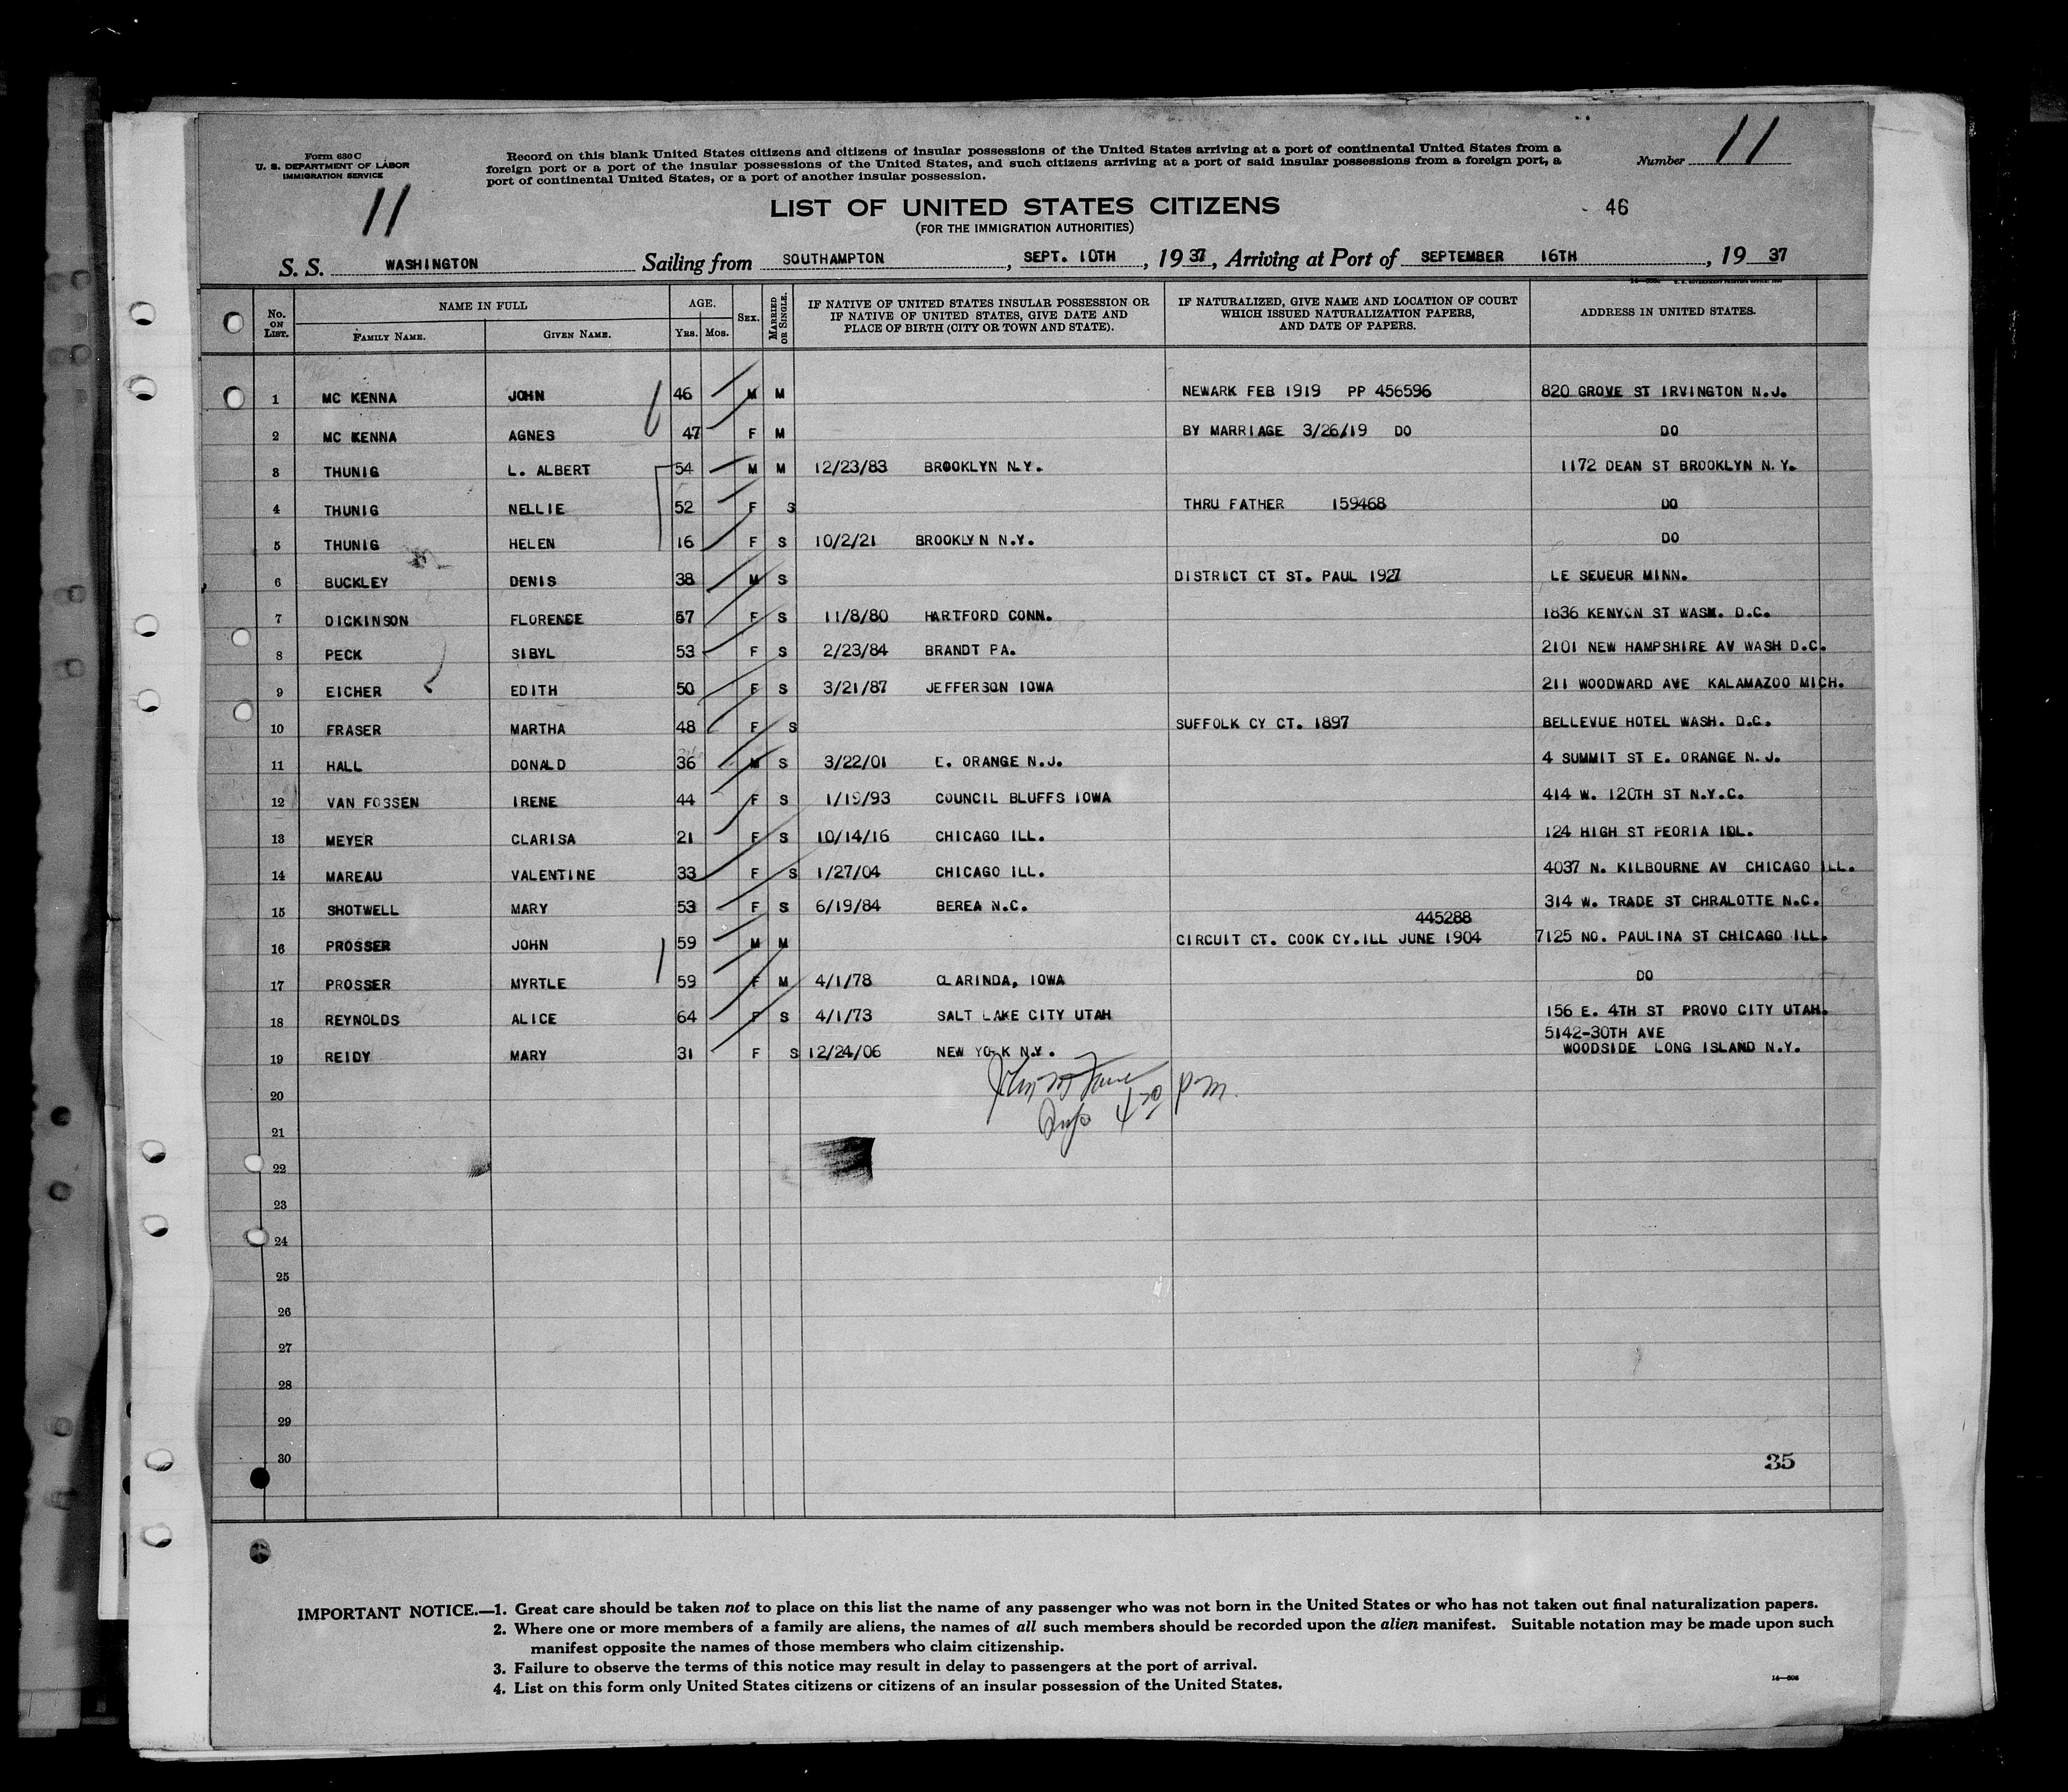 Form 630 C
U. S. DEPARTMENT OF LABOR
IMMIGRATION SERVICE
Record on this blank United States citizens and citizens of insular possessions of the United States arriving at a port of continental United States from a
foreign port or a port of the insular possessions of the United States, and such citizens arriving at a port of said insular possessions from a foreign port, a
port of continental United States, or a port of another insular possession.
Number 11
11
LIST OF UNITED STATES CITIZENS
46
(FOR THE IMMIGRATION AUTHORITIES)
S. S. WASHINGTON Sailing from SOUTHAMPTON, SEPT. 10TH, 1937, Arriving at Port of SEPTEMBER 16TH, 1937
No. ON LIST. NAME IN FULL FAMILY NAME. GIVEN NAME. AGE. YRS. MOS. SEX. MARRIED OR SINGLE. IF NATIVE OF UNITED STATES INSULAR POSSESSION OR IF NATIVE OF UNITED STATES, GIVE DATE AND PLACE OF BIRTH (CITY OR TOWN AND STATE). IF NATURALIZED, GIVE NAME AND LOCATION OF COURT WHICH ISSUED NATURALIZATION PAPERS, AND DATE OF PAPERS. ADDRESS IN UNITED STATES.
1 MC KENNA JOHN 46 M M NEWARK FEB 1919 PP 456596 820 GROVE ST IRVINGTON N.J.
2 MC KENNA AGNES 47 F M BY MARRIAGE 3/26/19 DO DO
3 THUNIG L. ALBERT 54 M M 12/23/83 BROOKLYN N.Y. 1172 DEAN ST BROOKLYN N.Y.
4 THUNIG NELLIE 52 F S THRU FATHER 159468 DO
5 THUNIG HELEN 16 F S 10/2/21 BROOKLYN N.Y. DO
6 BUCKLEY DENIS 38 M S DISTRICT CT ST. PAUL 1927 LE SEUEUR MINN.
7 DICKINSON FLORENCE 57 F S 11/8/80 HARTFORD CONN. 1836 KENYON ST WASH. D.C.
8 PECK SIBYL 53 F S 2/23/84 BRANDT PA. 2101 NEW HAMPSHIRE AV WASH D.C.
9 EICHER EDITH 50 F S 3/21/87 JEFFERSON IOWA 211 WOODWARD AVE KALAMAZOO MICH.
10 FRASER MARTHA 48 F S SUFFOLK CY CT. 1897 BELLEVUE HOTEL WASH. D.C.
11 HALL DONALD 36 M S 3/22/01 E. ORANGE N.J. 4 SUMMIT ST E. ORANGE N.J.
12 VAN FOSSEN IRENE 44 F S 1/19/93 COUNCIL BLUFFS IOWA 414 W. 120TH ST N.Y.C.
13 MEYER CLARISA 21 F S 10/14/16 CHICAGO ILL. 124 HIGH ST PEORIA IDL.
14 MAREAU VALENTINE 33 F S 1/27/04 CHICAGO ILL. 4037 N. KILBOURNE AV CHICAGO ILL.
15 SHOTWELL MARY 53 F S 6/19/84 BEREA N.C. 314 W. TRADE ST CHRALOTTE N.C.
445288
16 PROSSER JOHN 59 M M CIRCUIT CT. COOK CY.ILL JUNE 1904 7125 NO. PAULINA ST CHICAGO ILL.
17 PROSSER MYRTLE 59 F M 4/1/78 CLARINDA, IOWA DO
18 REYNOLDS ALICE 64 F S 4/1/73 SALT LAKE CITY UTAH 156 E. 4TH ST PROVO CITY UTAH.
5142-30TH AVE
19 REIDY MARY 31 F S 12/24/06 NEW YORK N.Y. WOODSIDE LONG ISLAND N.Y.
20
21
22
23
24
25
26
27
28
29
30
35
IMPORTANT NOTICE.—1. Great care should be taken not to place on this list the name of any passenger who was not born in the United States or who has not taken out final naturalization papers.
2. Where one or more members of a family are aliens, the names of all such members should be recorded upon the alien manifest. Suitable notation may be made upon such
manifest opposite the names of those members who claim citizenship.
3. Failure to observe the terms of this notice may result in delay to passengers at the port of arrival.
4. List on this form only United States citizens or citizens of an insular possession of the United States.